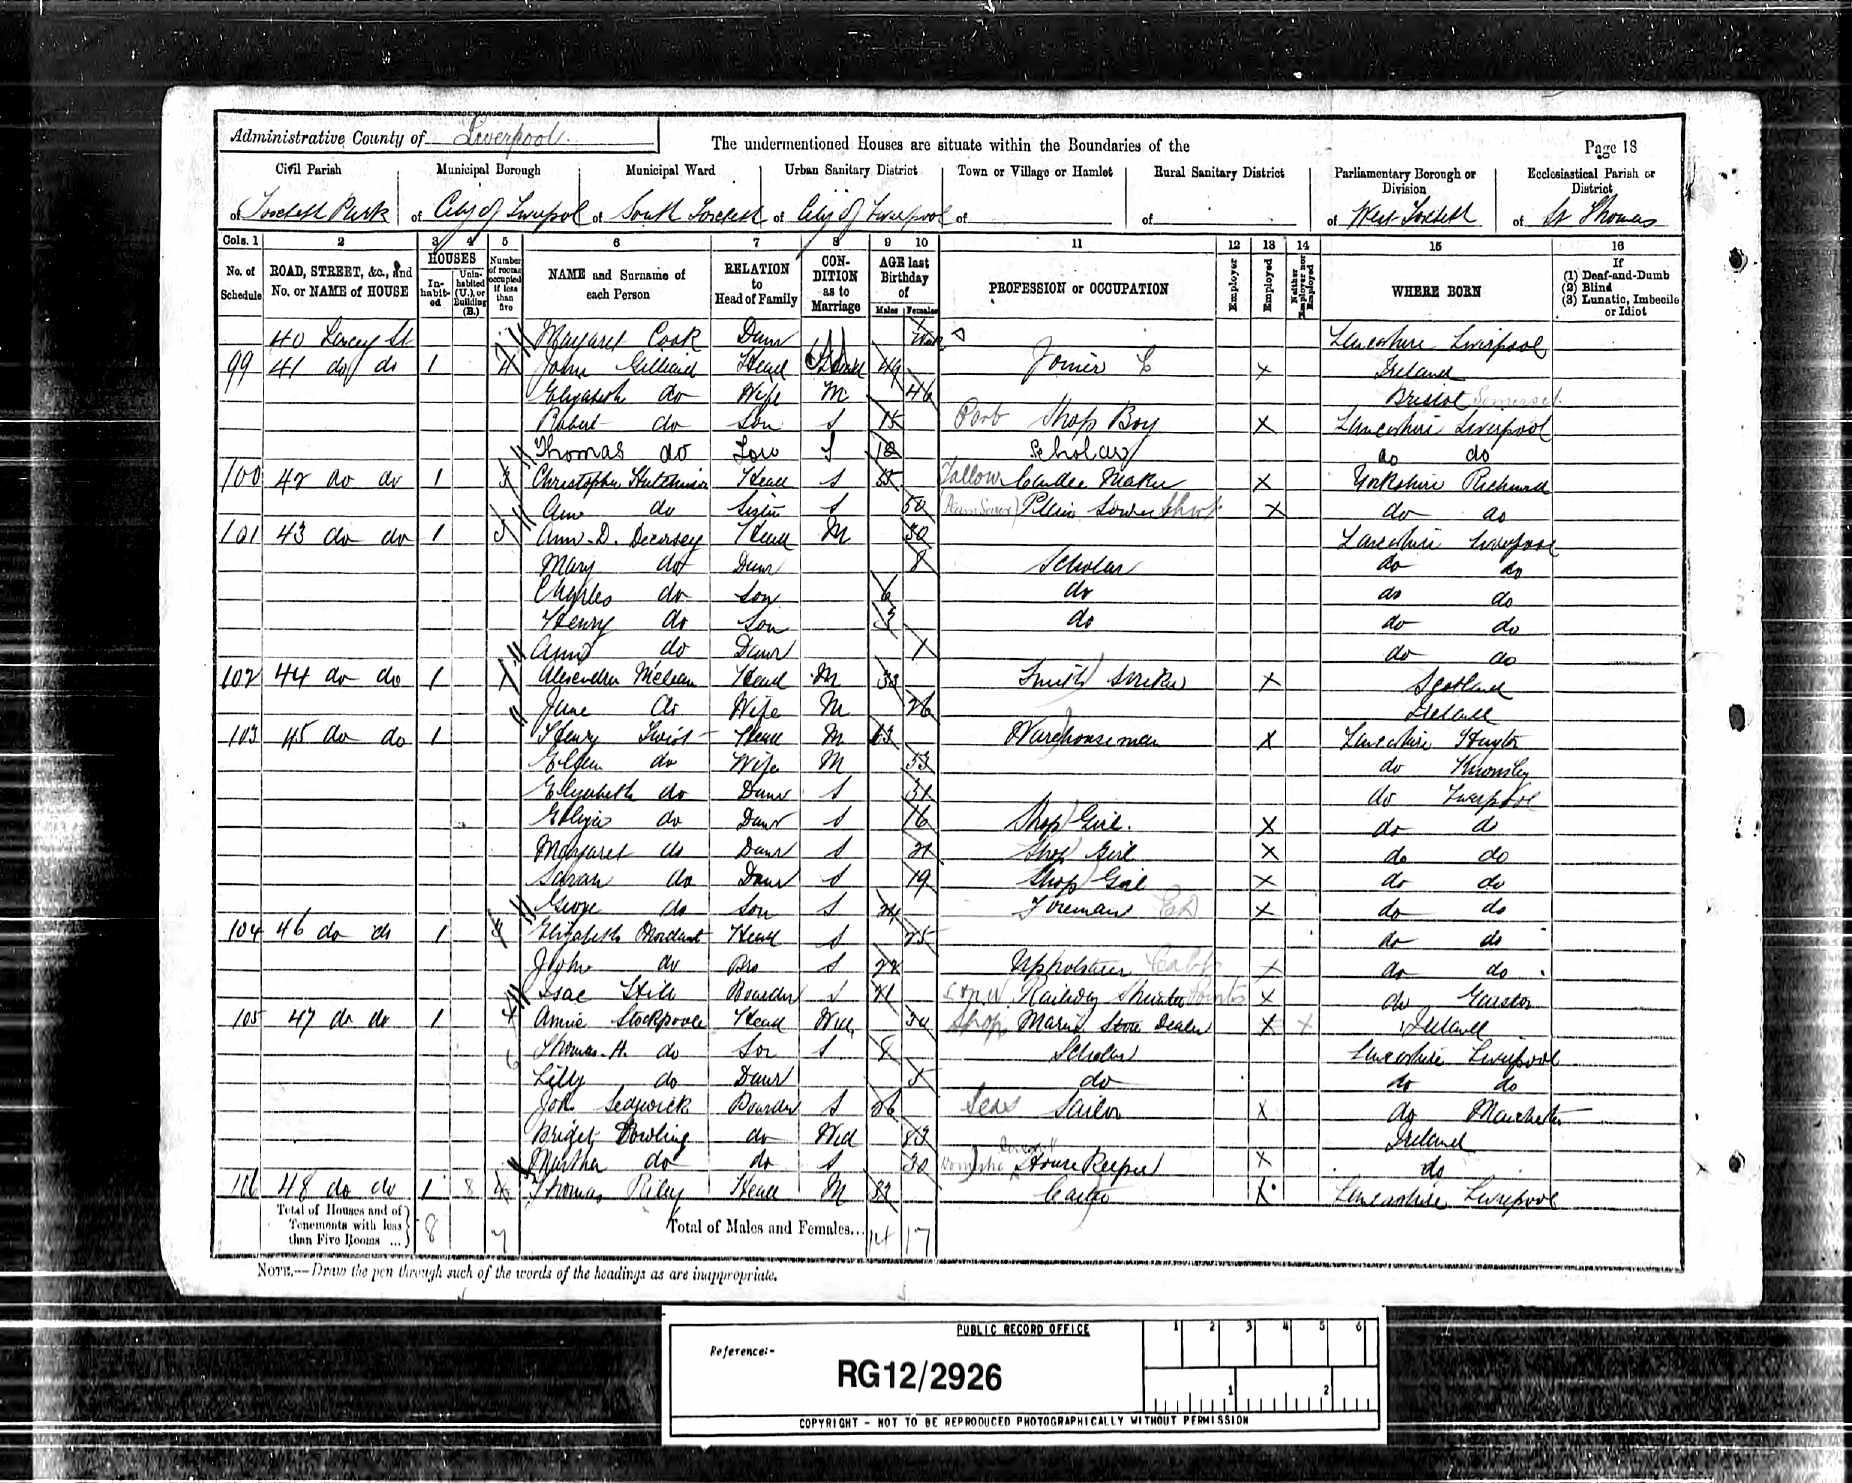 Administrative County of Liverpool
The undermentioned Houses are situate within the Boundaries of the
Page 18
Civil Parish Municipal Borough Municipal Ward Urban Sanitary District Town or Village or Hamlet Rural Sanitary District Parliamentary Borough or Division Ecclesiastical Parish or District
of Toxteth Park of City of Liverpool of South Toxteth of City of Liverpool of of of West Toxteth of St Thomas
Cols. 1 2 3 4 5 6 7 8 9 10 11 12 13 14 15 16
No. of Schedule ROAD, STREET, &c., and No. or NAME of HOUSE HOUSES Inhabited Uninhabited (U.), or Building (B.) Number of rooms occupied if less than five NAME and Surname of each Person RELATION to Head of Family CONDITION as to Marriage AGE last Birthday of Males Females PROFESSION or OCCUPATION Employer Employed Neither Employer nor Employed WHERE BORN If (1) Deaf-and-Dumb (2) Blind (3) Lunatic, Imbecile or Idiot
40 St Margaret Cook Daur Lancashire Liverpool
99 41 do do 1 4 John Head 49 Joiner X Ireland
Elizabeth do Wife M 46 Bristol Somerset
Robert do Son S 15 Shop Boy X Lancashire Liverpool
Thomas do Son S Scholar do do
100 42 do do 1 3 Christopher Hutchinson Head S 55 Tallow Candle Maker X Yorkshire Richmond
Ann do Sister S 50 Plain Sewer X do do
101 43 do do 1 3 Ann D. Head M 30 Lancashire Liverpool
Mary do Daur 8 Scholar do do
Charles do Son 6 do do do
Henry do Son 3 do do do
Ann do Daur 1 do do
102 44 do do 1 Alexander McLean Head M 33 Smith Striker X Scotland
Jane do Wife M 26 Ireland
103 45 do do 1 Henry Swift Head M 63 Warehouseman X Lancashire Huyton
Ellen do Wife M 53 do Knowsley
Elizabeth do Daur S 31 do Liverpool
do Daur S 16 Shop Girl. X do do
Margaret do Daur S 21 Shop Girl X do do
Sarah do Daur S 19 Shop Girl X do do
George do Son S 24 Foreman X do do
104 46 do do 1 Elizabeth Mordaunt Head S 25 do do
John do Bro S 22 Upholsterer X do do
Isac Still Boarder S 21 Railway X do Garston
105 47 do do 1 Annie Stockpoole Head Wid Shop Marine Store Dealer X X Ireland
Thomas. H. do Son S 8 Scholar Lancashire Liverpool
Lilly do Daur 5 do do do
Sedgwick Boarder S 26 Seas Sailor X do Manchester
Bridget Dowling do Wid Ireland
Martha do do S 30 Domestic House Keeper X do
106 48 do do 1 4 Thomas Riley Head M 32 Carter X Lancashire Liverpool
Total of Houses and of Tenements with less than Five Rooms ... 8 7 Total of Males and Females... 14 17
NOTE.—Draw the pen through such of the words of the headings as are inappropriate.
PUBLIC RECORD OFFICE
1 2 3 4 5 6
Reference:-
RG12/2926
1 2
COPYRIGHT - NOT TO BE REPRODUCED PHOTOGRAPHICALLY WITHOUT PERMISSION